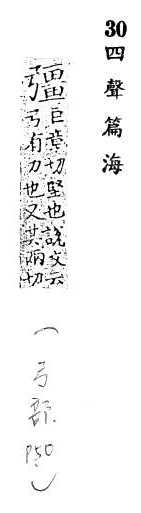 30四聲篇海
彊巨章切堅也說文云
弓有力也又其兩切
（弓部P50）